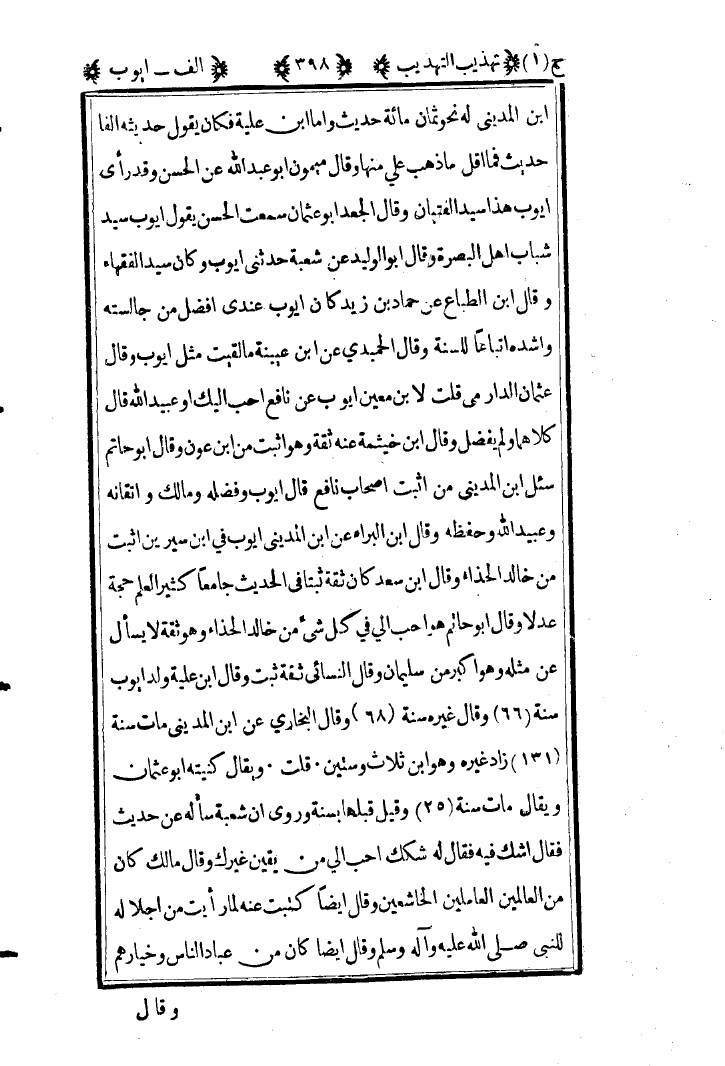 ج (١) تهذيب التهذيب ٣٩٨ الف ـ ايوب
ابن المدينى له نحو ثمان مائة حديث واما ابن علية فكان يقول حديثه الفا
حديث فما اقل ما ذهب علي منها وقال ميمون ابو عبدالله عن الحسن وقد رأى
ايوب هذا سيد الفتيان وقال الجعد ابو عثمان سمعت الحسن يقول ايوب سيد
شباب اهل البصرة وقال ابو الوليد عن شعبة حدثنى ايوب وكان سيد الفقهاء
وقال ابن الطباع عن حماد بن زيد كان ايوب عندى افضل من جالسته
واشده اتباعاً للسنة وقال الحميدي عن ابن عيينة مالقيت مثل ايوب وقال
عثمان الدارمى قلت لابن معين ايوب عن نافع احب اليك او عبيد الله قال
كلاهما ولم يفضل وقال ابن خيثمة عنه ثقة وهو اثبت من ابن عون وقال ابو حاتم
سئل ابن المدينى من اثبت اصحاب نافع قال ايوب وفضله ومالك و اتقانه
وعبيد الله وحفظه وقال ابن البراء عن ابن المدينى ايوب في ابن سيرين اثبت
من خالد الحذاء وقال ابن سعد كان ثقة ثبتا فى الحديث جامعاً كثير العلم حجة
عدلا وقال ابو حاتم هو احب الي في كل شئ من خالد الحذاء وهو ثقة لا يسأل
عن مثله وهو اكبر من سليمان وقال النسائى ثقة ثبت وقال ابن علية ولد ايوب
سنة (٦٦) وقال غيره سنة (٦٨) وقال البخاري عن ابن المدينى مات سنة
(١٣١) زاد غيره وهو ابن ثلاث وستين ٠ قلت ٠ ويقال كنيته ابو عثمان
ويقال مات سنة (٢٥) وقيل قبلها بسنة وروى ان شعبة سأله عن حديث
فقال اشك فيه فقال له شكك احب الي من يقين غيرك وقال مالك كان
من العالمين العاملين الخاشعين وقال ايضاً كتبت عنه لما رأيت من اجلاله
للنبي صلى الله عليه وآله وسلم وقال ايضا كان من عباد الناس وخيارهم
وقال